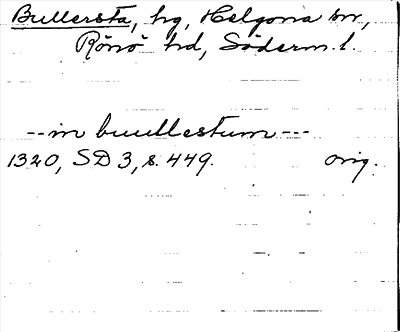 Bullersta, hg, Helgona sn,
Rönö hd, Söderm. l.
--in buullestum---
1320, SD 3, s. 449. orig.